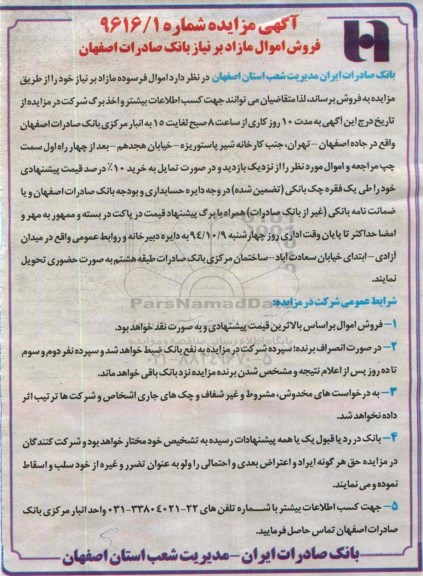 آگهی مزایده شماره ۹۶۱۶/۱
فروش اموال مازاد بر نیاز بانک صادرات اصفهان
بانک صادرات ایران مدیریت شعب استان اصفهان در نظر دارد اموال فرسوده مازاد بر نیاز خود را از طریق
مزایده به فروش برساند، لذا متقاضیان می توانند جهت کسب اطلاعات بیشتر و اخذ برگ شرکت در مزایده از
تاریخ درج این آگهی به مدت ۱۰ روز کاری از ساعت ۸ صبح لغایت ۱۵ به انبار مرکزی بانک صادرات اصفهان
واقع در جاده اصفهان - تهران، جنب کارخانه شیر پاستوریزه - خیابان هجدهم - بعد از چهار راه اول سمت
چپ مراجعه و اموال مورد نظر را از نزدیک بازدید و در صورت تمایل به خرید ۱۰٪ درصد قیمت پیشنهادی
خود را طی یک فقره چک بانکی (تضمین شده) در وجه دایره حسابداری و بودجه بانک صادرات اصفهان و یا
ضمانت نامه بانکی (غیر از بانک صادرات) همراه با برگ پیشنهاد قیمت در پاکت در بسته و ممهور به مهر و
امضا حداکثر تا پایان وقت اداری روز چهارشنبه ۹۴/۱۰/۹ به دایره دبیرخانه و روابط عمومی واقع در میدان
آزادی - ابتدای خیابان سعادت آباد - ساختمان مرکزی بانک صادرات طبقه هشتم به صورت حضوری تحویل
نمایند.
ParsNamadData
شرایط عمومی شرکت در مزایده:
۱- فروش اموال بر اساس بالاترین قیمت پیشنهادی و به صورت نقد خواهد بود.
پایگاه اطلاع رسانی مناقصه و مزایده
۲- در صورت انصراف برنده؛ سپرده شرکت در مزایده به نفع بانک ضبط خواهد شد و سپرده نفر دوم و سوم
تا ده روز پس از اعلام نتیجه و مشخص شدن برنده مزایده نزد بانک باقی خواهد ماند.
۳- به درخواست های مخدوش، مشروط و غیر شفاف و چک های جاری اشخاص و شرکت ها ترتیب اثر
داده نخواهد شد.
۴- بانک در رد یا قبول یک یا همه پیشنهادات رسیده به تشخیص خود مختار خواهد بود و شرکت کنندگان
در مزایده حق هر گونه ایراد و اعتراض بعدی و احتمالی را ولو به عنوان تضرر و غیره از خود سلب و اسقاط
نموده و می نمایند.
۵- جهت کسب اطلاعات بیشتر با شماره تلفن های ۲۲-۳۳۸۰۴۰۲۱-۰۳۱ واحد انبار مرکزی بانک
صادرات اصفهان تماس حاصل فرمایید.
بانک صادرات ایران - مدیریت شعب استان اصفهان